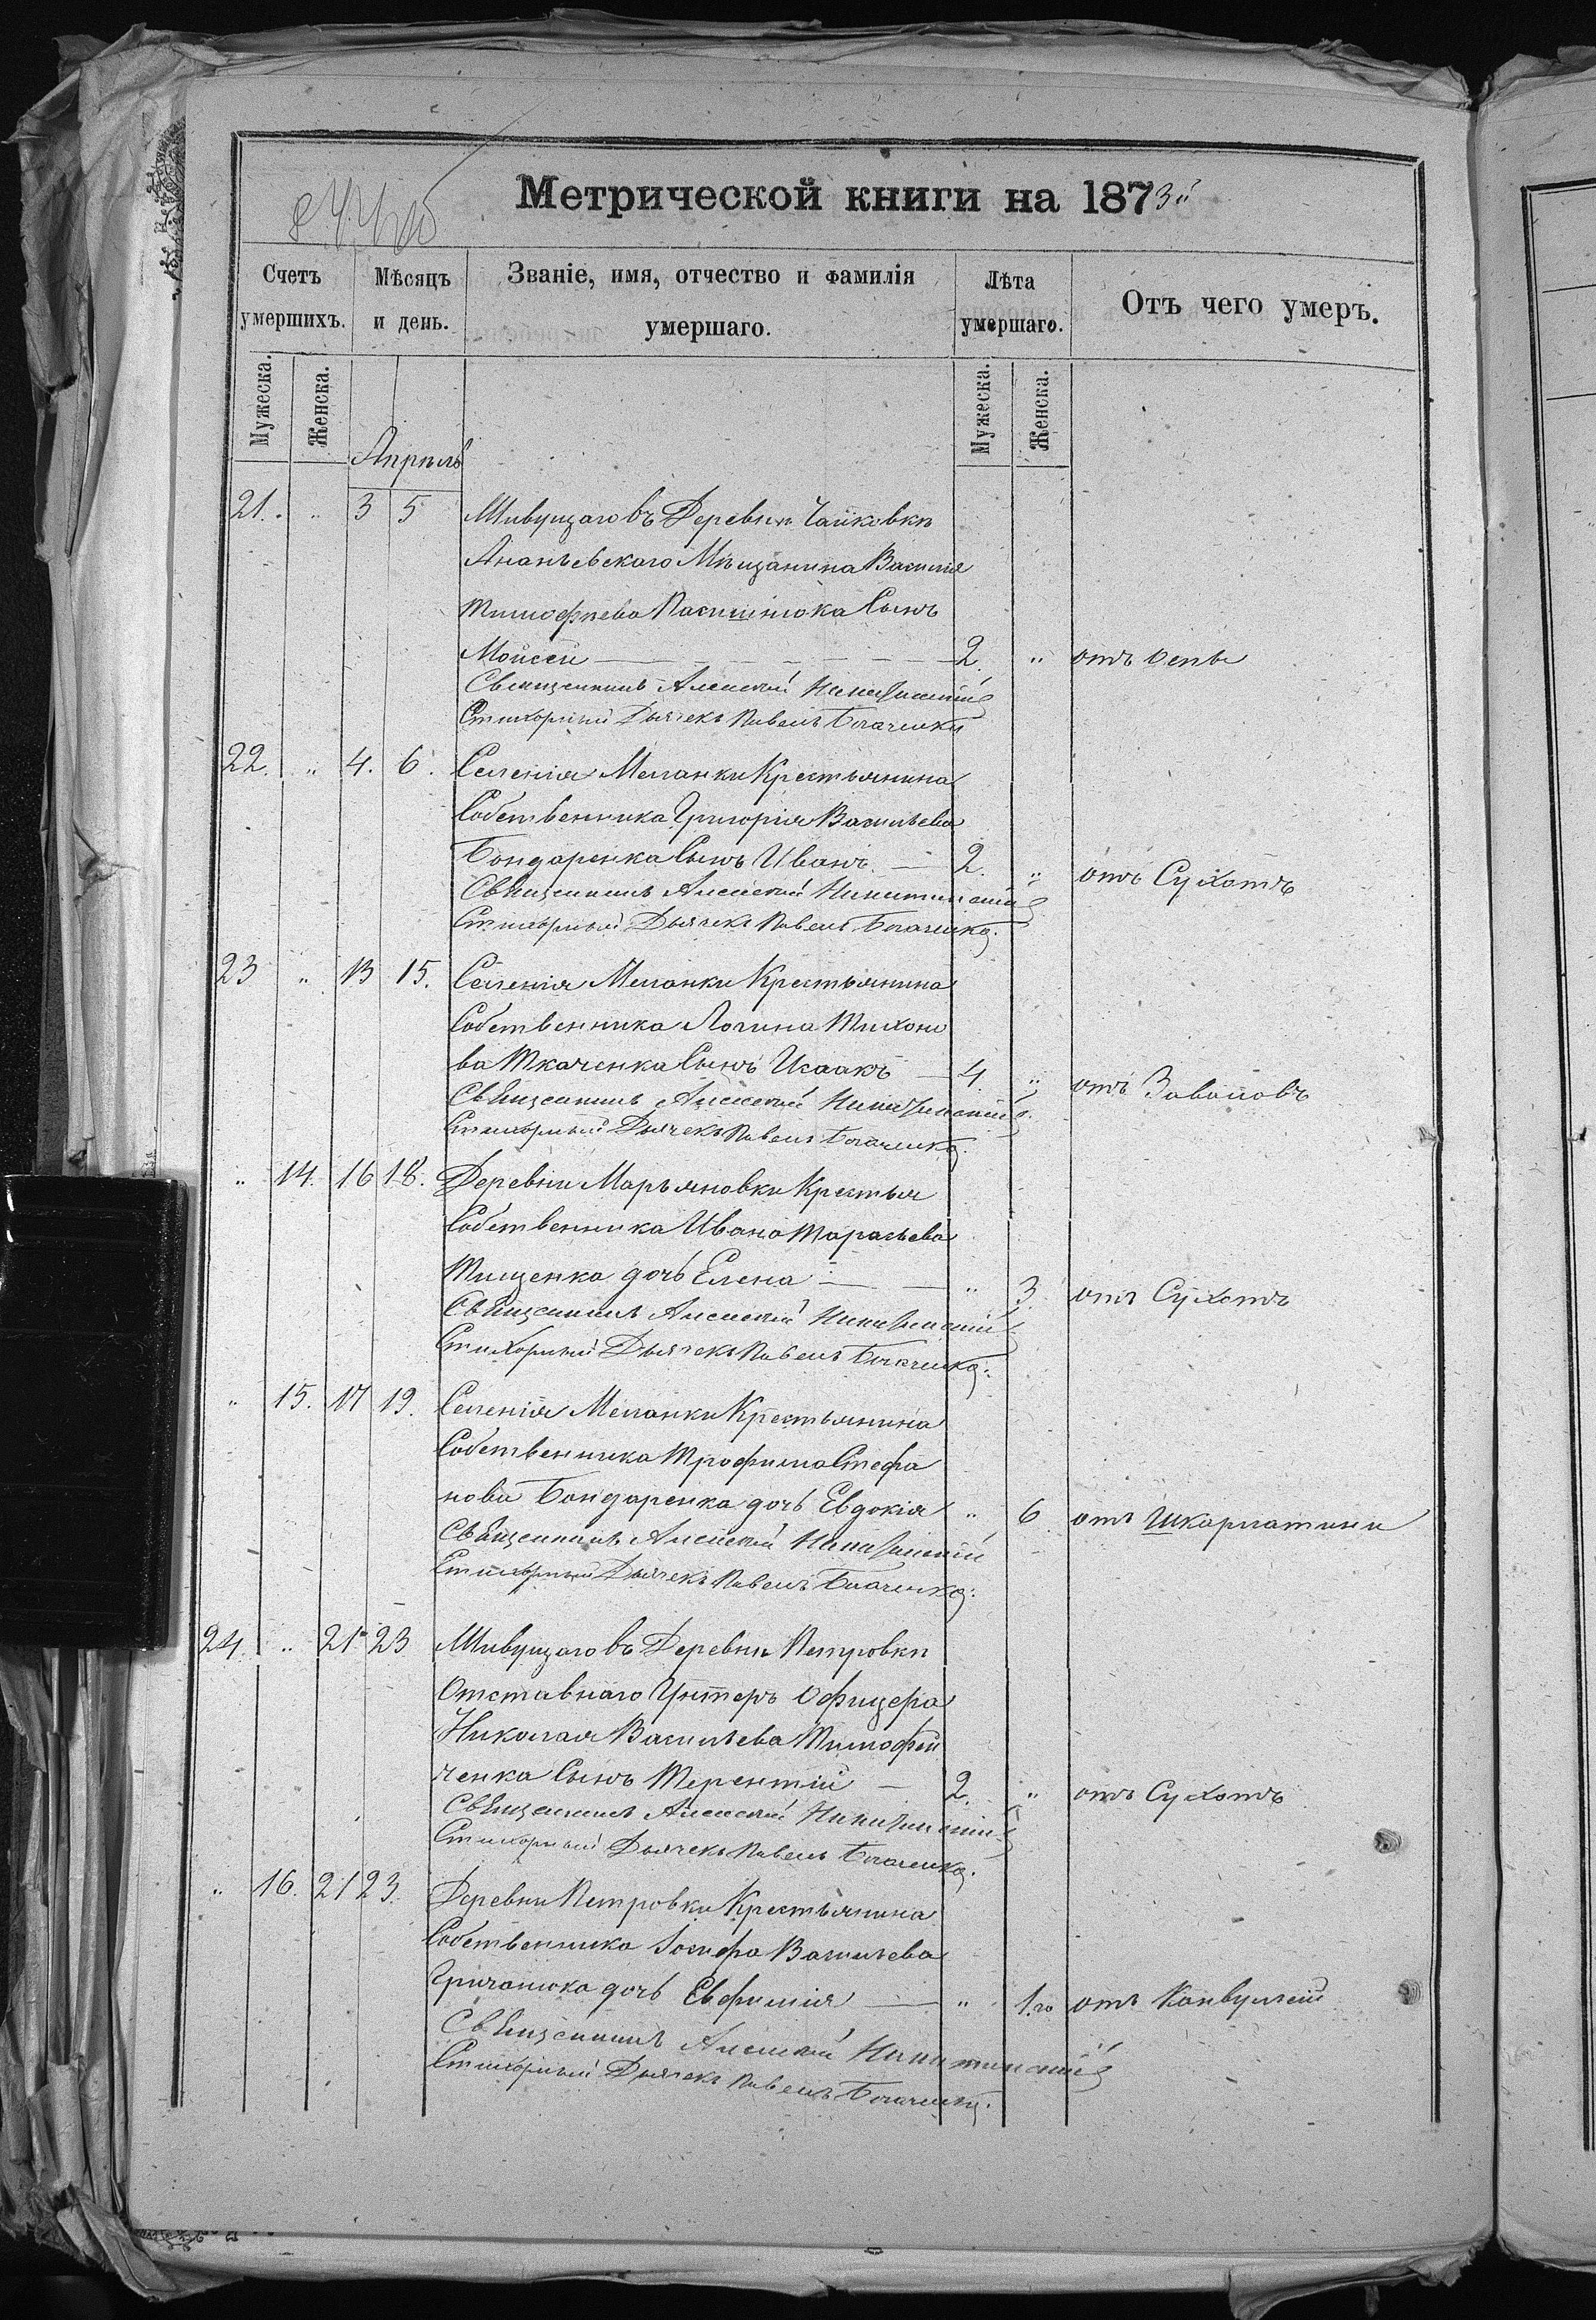 Метрической книги на 1873й
Счетъ умершихъ.
Мѣсяцъ и день.
Званіе, имя, отчество и фамилія умершаго.
Лѣта умершаго.
Отъ чего умеръ.
Мужеска.
Женска.
Мужеска.
Женска.
Апрѣль
21. " 3 5 Живущаго въ Деревнѣ Чайковкѣ
Ананьевскаго Мѣщанина Василія
Тимофѣева Сынъ
Мойсей 2. " отъ Оспы
Священникъ Алексѣй Никитинскій
Стихарный Дьячекъ Павелъ
22. " 4. 6. Селенія Меланки Крестьянина
Собственника Григорія Васильева
Бондаренка Сынъ Иванъ. 2. " отъ Сухотъ
Священникъ Алексѣй Никитинскій
Стихарный Дьячекъ Павелъ
23 " 13 15. Селенія Меланки Крестьянина
Собственника Логина Тихоно
ва Ткаченка Сынъ Исаакъ 4. " отъ Заваловъ
Священникъ Алексѣй Никитинскій
Стихарный Дьячекъ Павелъ
" 14. 16 18. Деревни Марьяновки Крестья
Собственника Ивана Тарасьева
Тищенка дочь Елена " 3. отъ Сухотъ
Священникъ Алексѣй Никитинскій
Стихарный Дьячекъ Павелъ
" 15. 17 19. Селенія Меланки Крестьянина
Собственника Трофима Стефа
нова Бондаренка дочь Евдокія " 6. отъ Шкарлатини
Священникъ Алексѣй Никитинскій
Стихарный Дьячекъ Павелъ
24. " 21 23 Живущаго въ Деревнѣ Петровкѣ
Отставнаго Унтеръ Офицера
Николая Васильева Тимофей
ченка Сынъ Терентій 2. " отъ Сухотъ
Священникъ Алексѣй Никитинскій
Стихарный Дьячекъ Павелъ
" 16. 21 23. Деревни Петровки Крестьянина
Собственника Іосифа Васильева
дочь Евфимія " 1.го отъ Конвульсій
Священникъ Алексѣй Никитинскій
Стихарный Дьячекъ Павелъ